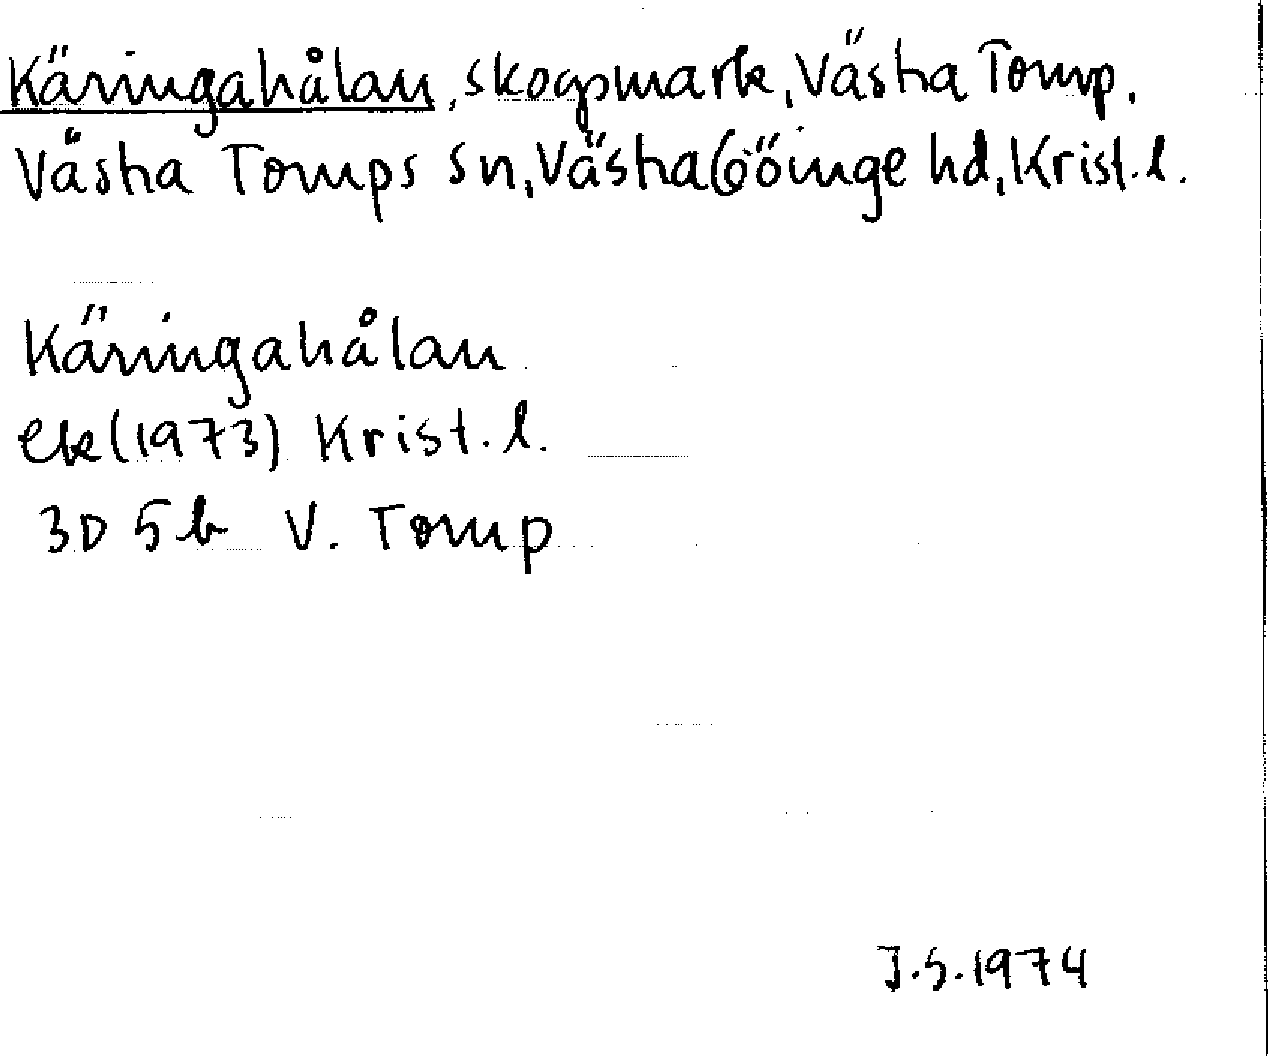 Käringahålan, skogsmark, Västra Torup.
Västra Torups sn, Västra Göinge hd, Krist. l.
Käringahålan
Ek (1973) Krist. l.
3D 5b V. Torup
J.S. 1974